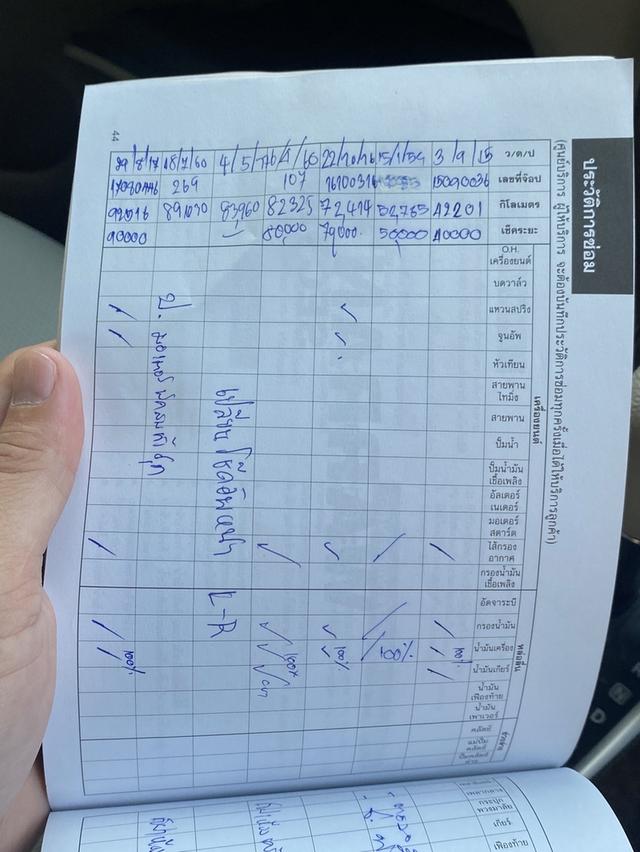 ประวัติการซ่อม
(ศูนย์บริการ ผู้ให้บริการ จะต้องบันทึกประวัติการซ่อมทุกครั้งเมื่อได้ให้บริการลูกค้า)
ว/ด/ป 3/9/15 15/1/59 22/10/16 4/5/ 18/7/60
เลขที่จ๊อบ 15090036 16100316 107 269
กิโลเมตร 42201 52,765 72,414 82325 83960 891030 92016
เช็คระยะ 40000 50,000 70000. 80,000 90000
เครื่องยนต์
O.H. เครื่องยนต์
บดวาล์ว
แหวนสปริง
จูนอัพ
หัวเทียน
สายพาน ไทมิ่ง
สายพาน
ปั๊มน้ำ
ปั๊มน้ำมัน เชื้อเพลิง
อัลเตอร์ เนเตอร์
มอเตอร์ สตาร์ต
ไส้กรอง อากาศ
กรองน้ำมัน เชื้อเพลิง
หล่อลื่น
อัดจาระบี
กรองน้ำมัน
น้ำมันเครื่อง 100% 100% 100% 100% 100%
น้ำมันเกียร์
น้ำมัน เฟืองท้าย
น้ำมัน เพาเวอร์
ช่วงล่าง
คลัตช์
แม่ปั๊ม คลัตช์
ปั๊มคลัตช์ ล่าง
เปลี่ยนโช๊คอัพหน้า L-R
44
เพลากลาง
กระปุก พวงมาลัย
เกียร์
เฟืองท้าย